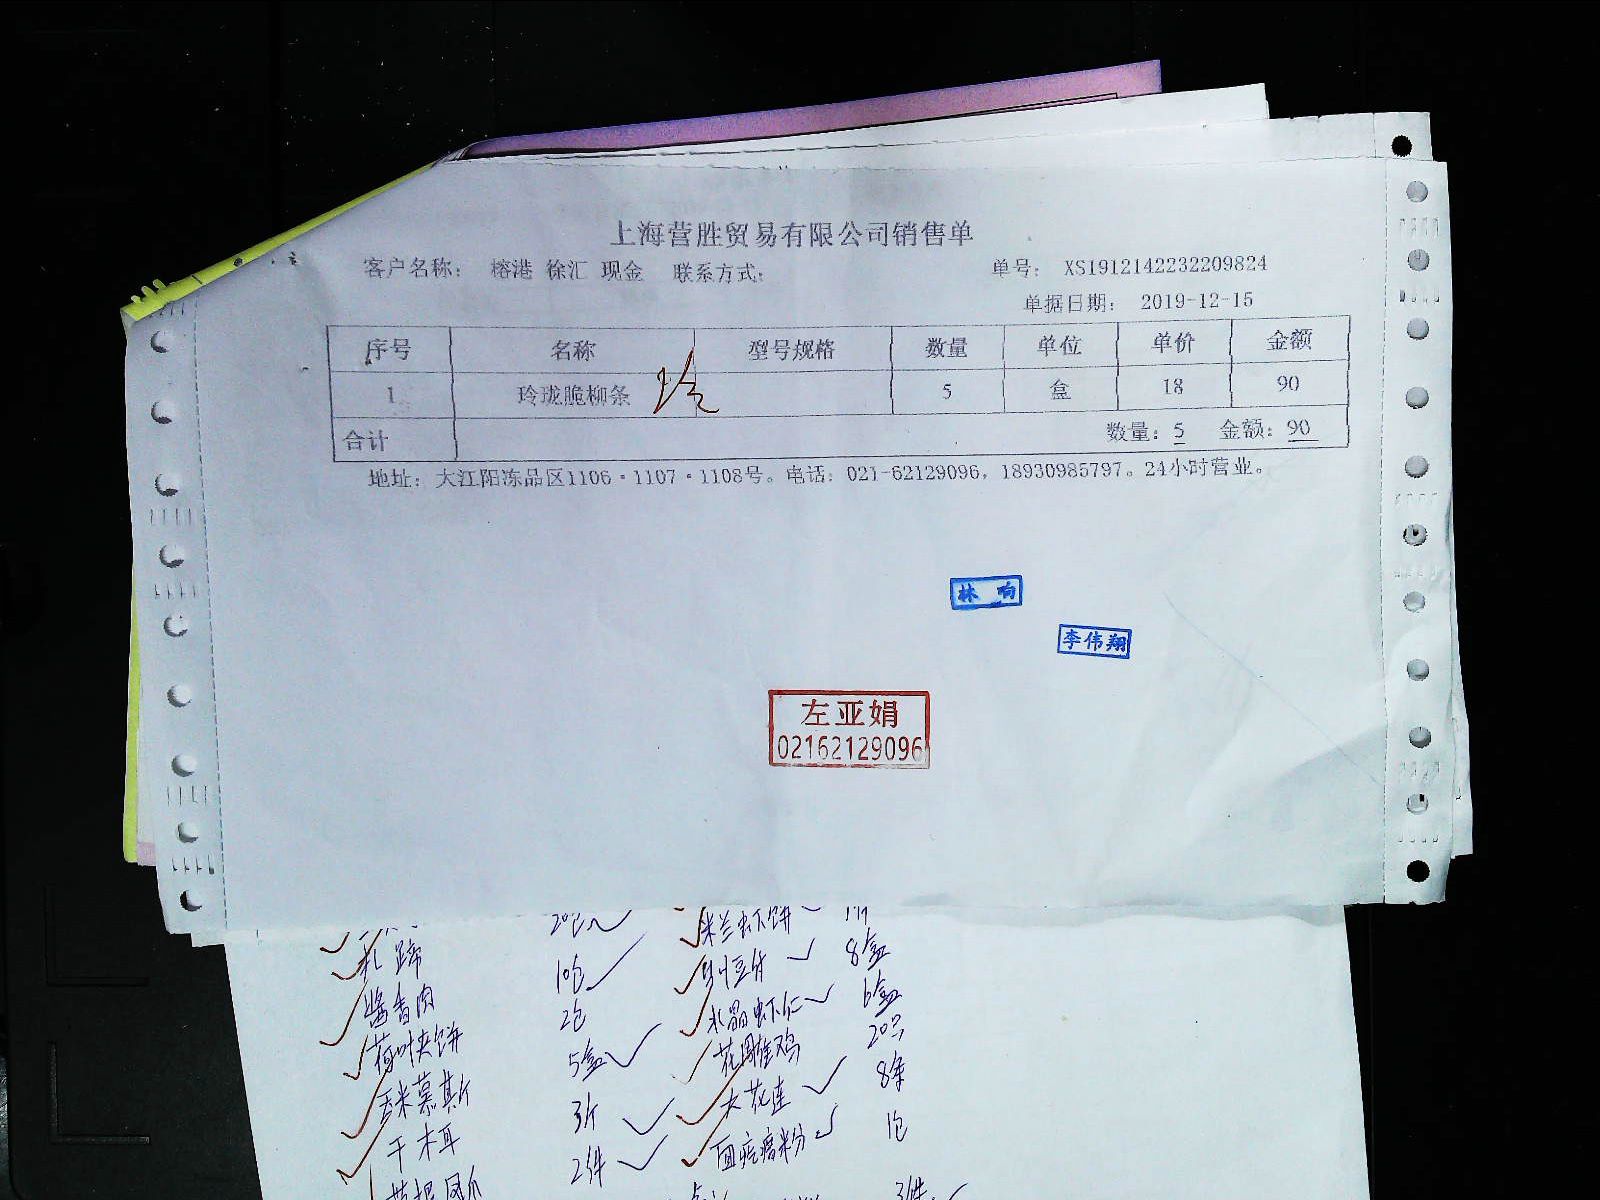 上海营胜贸易有限公司销售单
客户名称： 榕港 徐汇 现金 联系方式： 单号： XS1912142232209824
单据日期： 2019-12-15
序号 名称 型号规格 数量 单位 单价 金额
1 玲珑脆柳条 5 盒 18 90
合计 数量：5 金额：90
地址：大江阳冻品区1106·1107·1108号。电话：021-62129096，18930985797。24小时营业。
林 响
李伟翔
左亚娟
02162129096
20包 米兰虾饼
扎蹄 10包 8盒
酱香肉 2包 水晶虾仁 6盒
荷叶夹饼 5盒 花雕鸡 20只
玉米慕斯 3斤 大花连 8条
干木耳 2件 面疙瘩粉 1包
3件